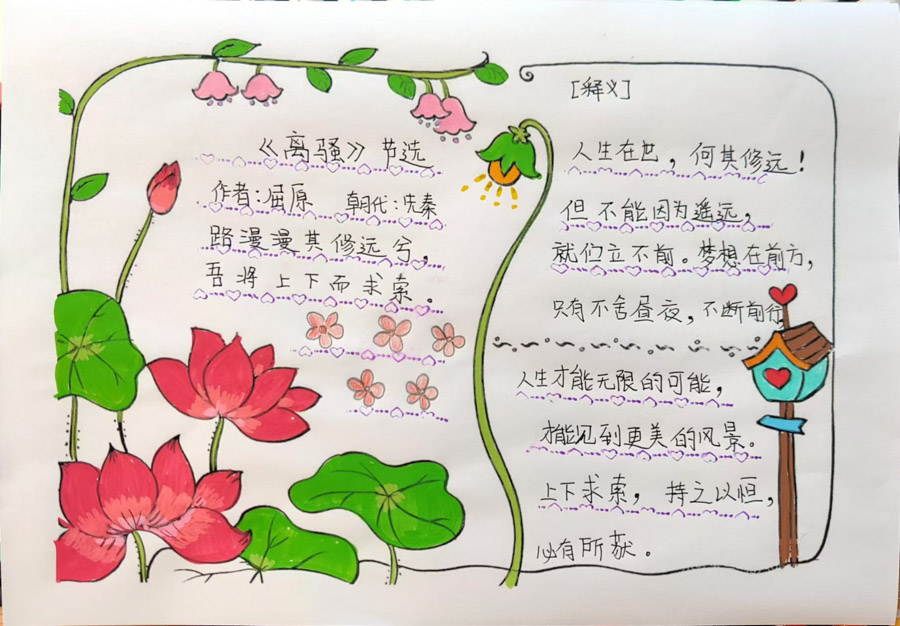 《离骚》节选
作者:屈原 朝代:先秦
路漫漫其修远兮,
吾将上下而求索。
[释义]
人生在世,何其修远!
但不能因为遥远,
就伫立不前。梦想在前方,
只有不舍昼夜,不断前行
人生才能无限的可能,
才能见到更美的风景。
上下求索,持之以恒,
必有所获。